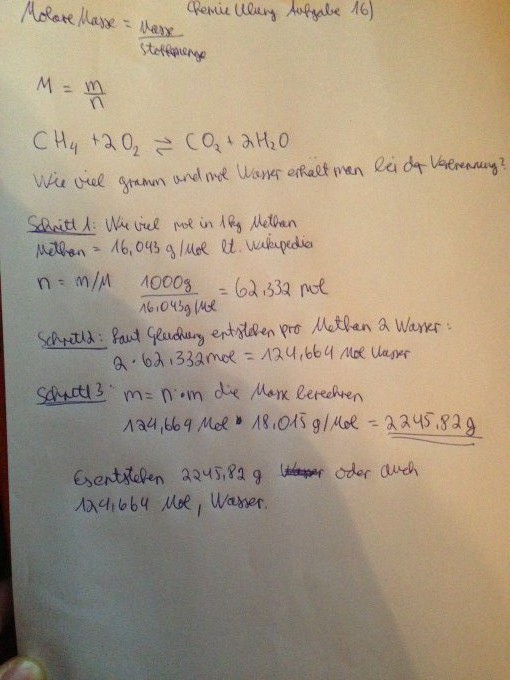 Chemie Übung Aufgabe 16)
Molare Masse = Masse / Stoffmenge
M = m / n
CH4 + 2O2 ⇌ CO2 + 2H2O
Wie viel gramm und mol Wasser erhält man bei der Verbrennung?
Schritt 1: Wie viel mol in 1kg Methan
Methan = 16,043 g/Mol lt. Wikipedia
n = m/M 1000g / 16,043g/Mol = 62,332 mol
Schritt 2: Laut Gleichung entstehen pro Methan 2 Wasser:
2 · 62,332mol = 124,664 Mol Wasser
Schritt 3: m = n · m die Masse berechnen
124,664 Mol · 18,015 g/Mol = 2245,82 g
Es entstehen 2245,82 g oder auch
124,664 Mol, Wasser.